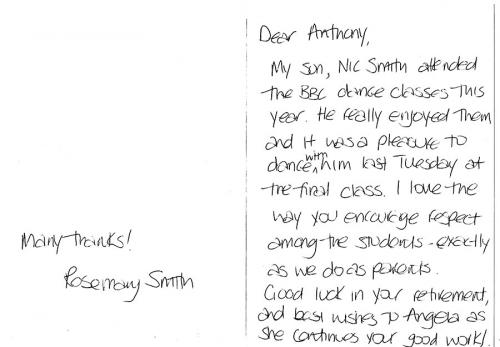 Dear Anthony,
My son, Nic Smith attended
the BBC dance classes this
year. He really enjoyed them
and it was a pleasure to
dance with him last Tuesday at
the final class. I love the
way you encourage respect
among the students - exactly
as we do as parents.
Good luck in your retirement,
and best wishes to Angela as
she continues your good work!
Many thanks!
Rosemary Smith